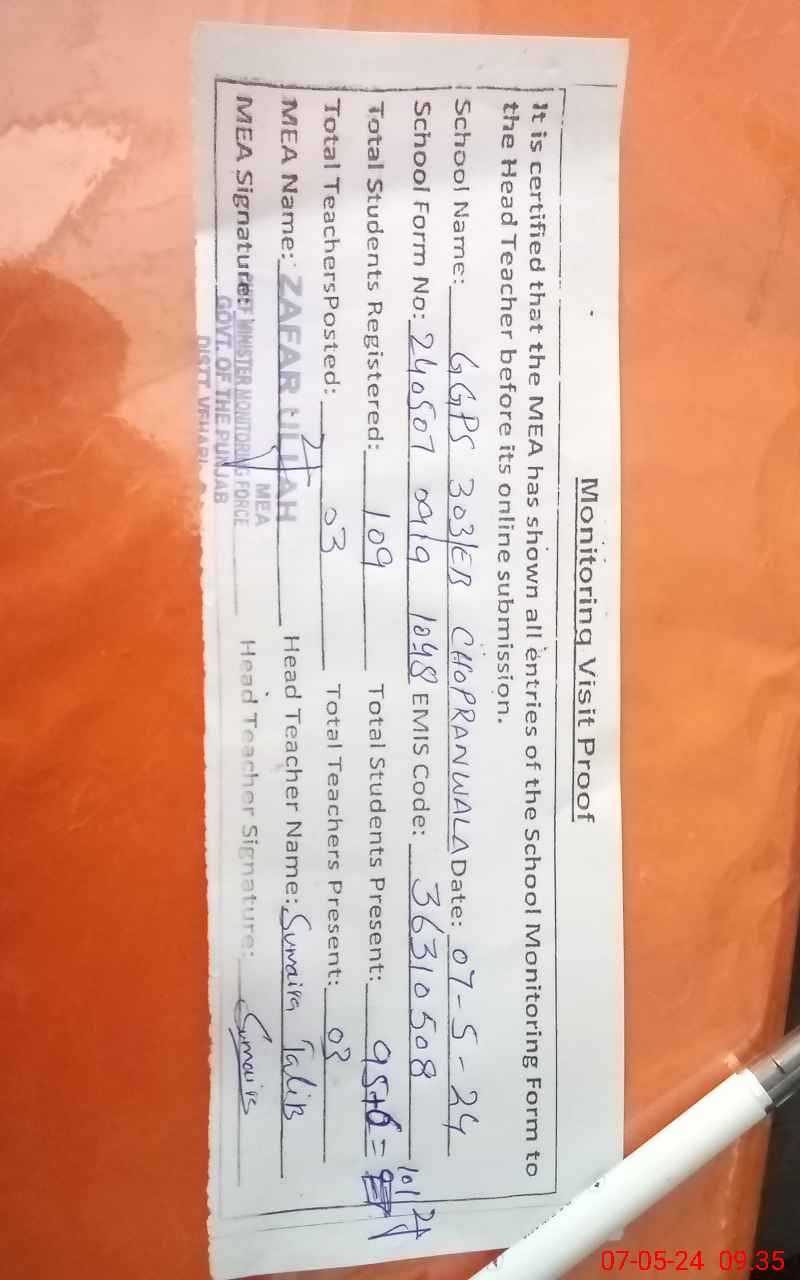 Monitoring Visit Proof
It is certified that the MEA has shown all entries of the School Monitoring Form to
the Head Teacher before its online submission.
School Name: GGPS 303/EB CHOPRANWALA Date: 07-5-24
School Form No: 240507 0919 1098 EMIS Code: 36310508
Total Students Registered: 109 Total Students Present: 95+6= 101
Total TeachersPosted: 03 Total Teachers Present: 03
MEA Name: ZAFAR ULLAH Head Teacher Name: Sumaira Talib
MEA Signature: Head Teacher Signature: Sumaira
MEA
CHIEF MINISTER MONITORING FORCE
GOVT. OF THE PUNJAB
DISTT. VEHARI
07-05-24 09:35